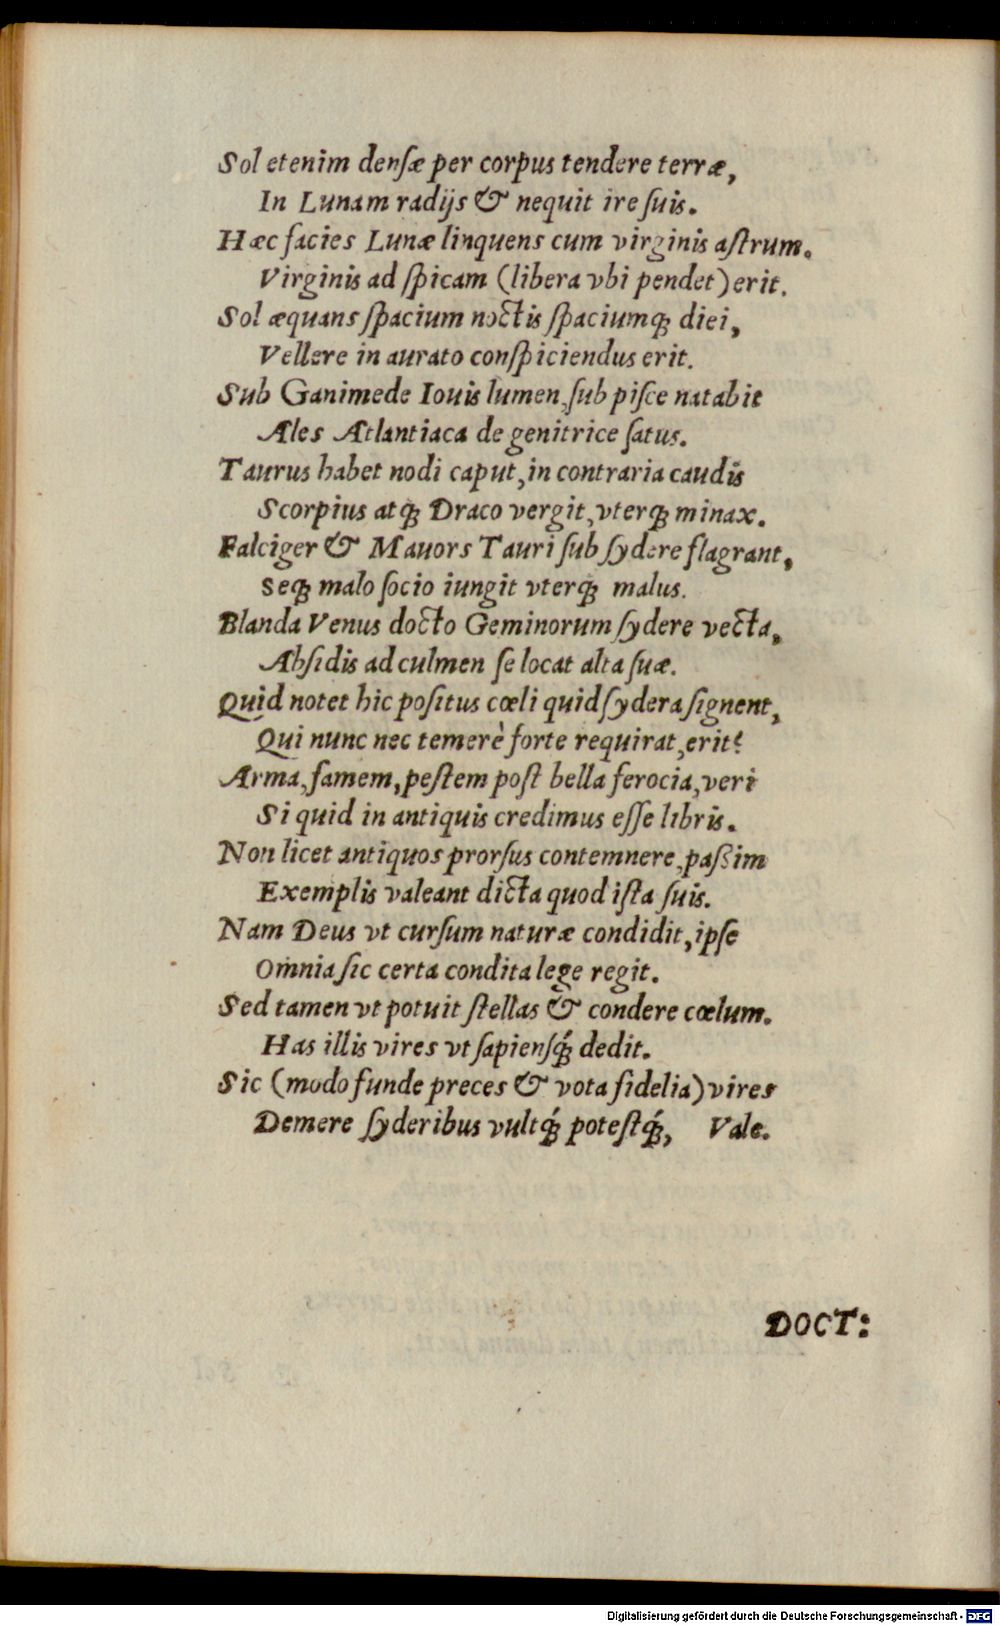 Sol etenim denſæ per corpus tendere terræ,
In Lunam radijs & nequit ire ſuis.
Hæc facies Lunæ linquens cum virginis aſtrum.
Virginis ad ſpicam (libera vbi pendet) erit.
Sol æquans ſpacium noctis ſpaciumq́; diei,
Vellere in aurato conſpiciendus erit.
Sub Ganimede Iouis lumen, ſub piſce natabit
Ales Atlantiaca de genitrice ſatus.
Taurus habet nodi caput, in contraria caudis
Scorpius atq; Draco vergit, vterq; minax.
Falciger & Mauors Tauri ſub ſydere flagrant,
Seq; malo ſocio iungit vterq; malus.
Blanda Venus docto Geminorum ſydere vecta,
Abſidis ad culmen ſe locat alta ſuæ.
Quid notet hic poſitus cœli quid ſydera ſignent,
Qui nunc nec temerè forte requirat, erit?
Arma, famem, peſtem poſt bella ferocia, veri
Si quid in antiquis credimus eſſe libris.
Non licet antiquos prorſus contemnere, paſſim
Exemplis valeant dicta quod iſta ſuis.
Nam Deus vt curſum naturæ condidit, ipſe
Omnia ſic certa condita lege regit.
Sed tamen vt potuit ſtellas & condere cœlum.
Has illis vires vt ſapienſq́; dedit.
Sic (modo funde preces & vota fidelia) vires
Demere ſyderibus vultq́; poteſtq́;, Vale.
DOCT:
Digitalisierung gefördert durch die Deutsche Forschungsgemeinschaft - DFG